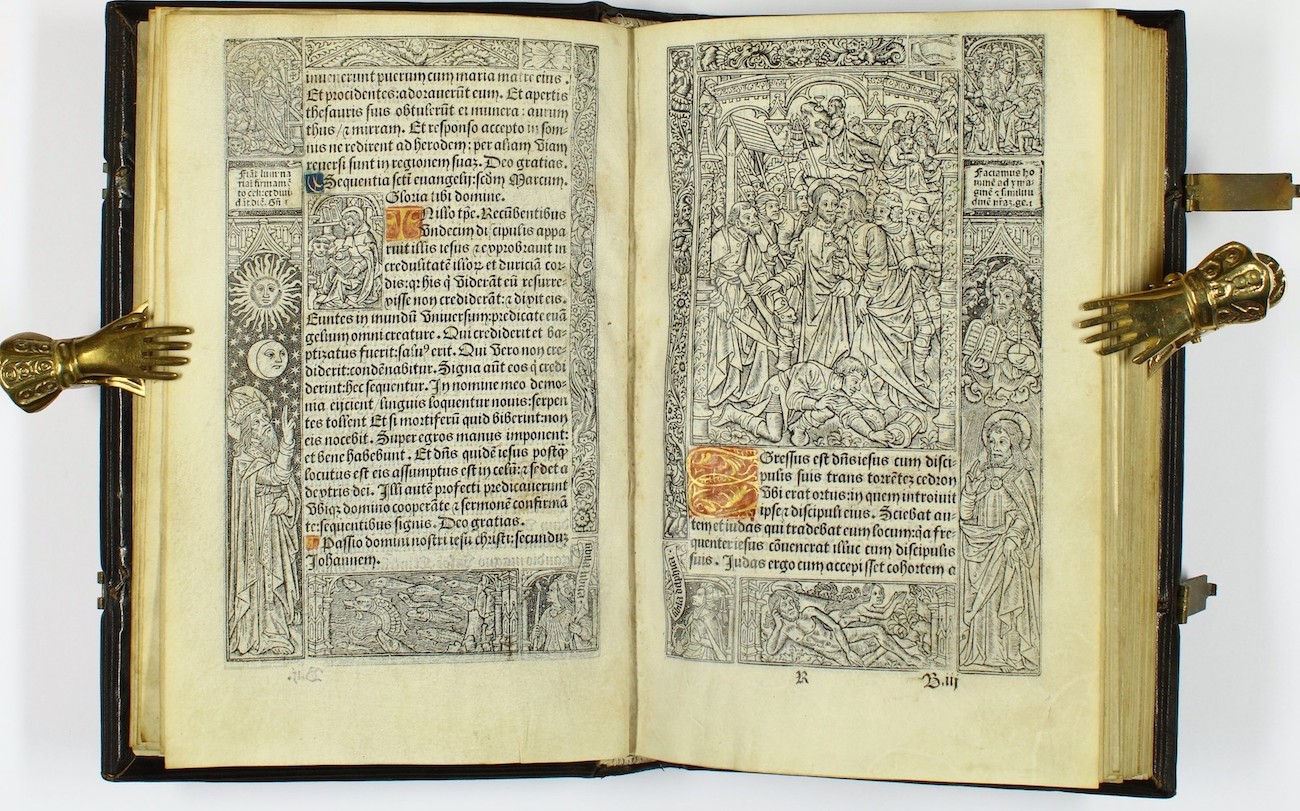 inuenerunt puerum cum maria matre eius.
Et procidentes: adorauerūt eum. Et apertis
thesauris suis obtulerūt ei munera: aurum
thus/ ⁊ mirram. Et responso accepto in som-
nis ne redirent ad herodem: per aliam viam
reuersi sunt in regionem suaꝫ. Deo gratias.
Sequentia scti euangelij: scdm Marcum.
Gloria tibi domine.
Nillo tꝑe. Recūbentibus
vndecim discipulis appa
ruit illis iesus ⁊ exprobrauit in
credulitatē illoꝝ et duriciā cor-
dis: qꝛ his ꝗ viderāt eū resurre-
xisse non crediderāt: ⁊ dixit eis.
Euntes in mundū vniuersum: predicate euā
gelium omni creature. Qui crediderit et ba-
ptizatus fuerit: saluꝰ erit. Qui vero non cre-
diderit: condēnabitur. Signa aūt eos ꝗ credi
derint: hec sequentur. In nomine meo demo-
nia eijcient/ linguis loquentur nouis: serpen
tes tollent Et si mortiferū quid biberint: non
eis nocebit. Super egros manus imponent:
et bene habebunt. Et dn̄s quidē iesus postꝙ̄
locutus est eis assumptus est in celū: ⁊ sedet a
dextris dei. Illi autē profecti predicauerunt
vbiqꝫ domino cooperāte ⁊ sermonē confirmā
te: sequentibus signis. Deo gratias.
Passio domini nostri iesu christi: secunduꝫ
Johannem.
Fiāt lumina
ria ī firmamē
to celi: et diui
dāt diē. Gn̄ ı
Gressus est dn̄s iesus cum disci-
pulis suis trans torrēteꝫ cedron
vbi erat ortus: in quem introiuit
ipse ⁊ discipuli eius. Sciebat au-
tem et iudas qui tradebat eum locum: ꝗa fre-
quenter iesus cōuenerat illuc cum discipulis
suis. Judas ergo cum accepisset cohortem a
Faciamus ho
minē ad ymа
ginē ⁊ similitu
dinē nr̄aꝫ. ge. ı
R
B.iij